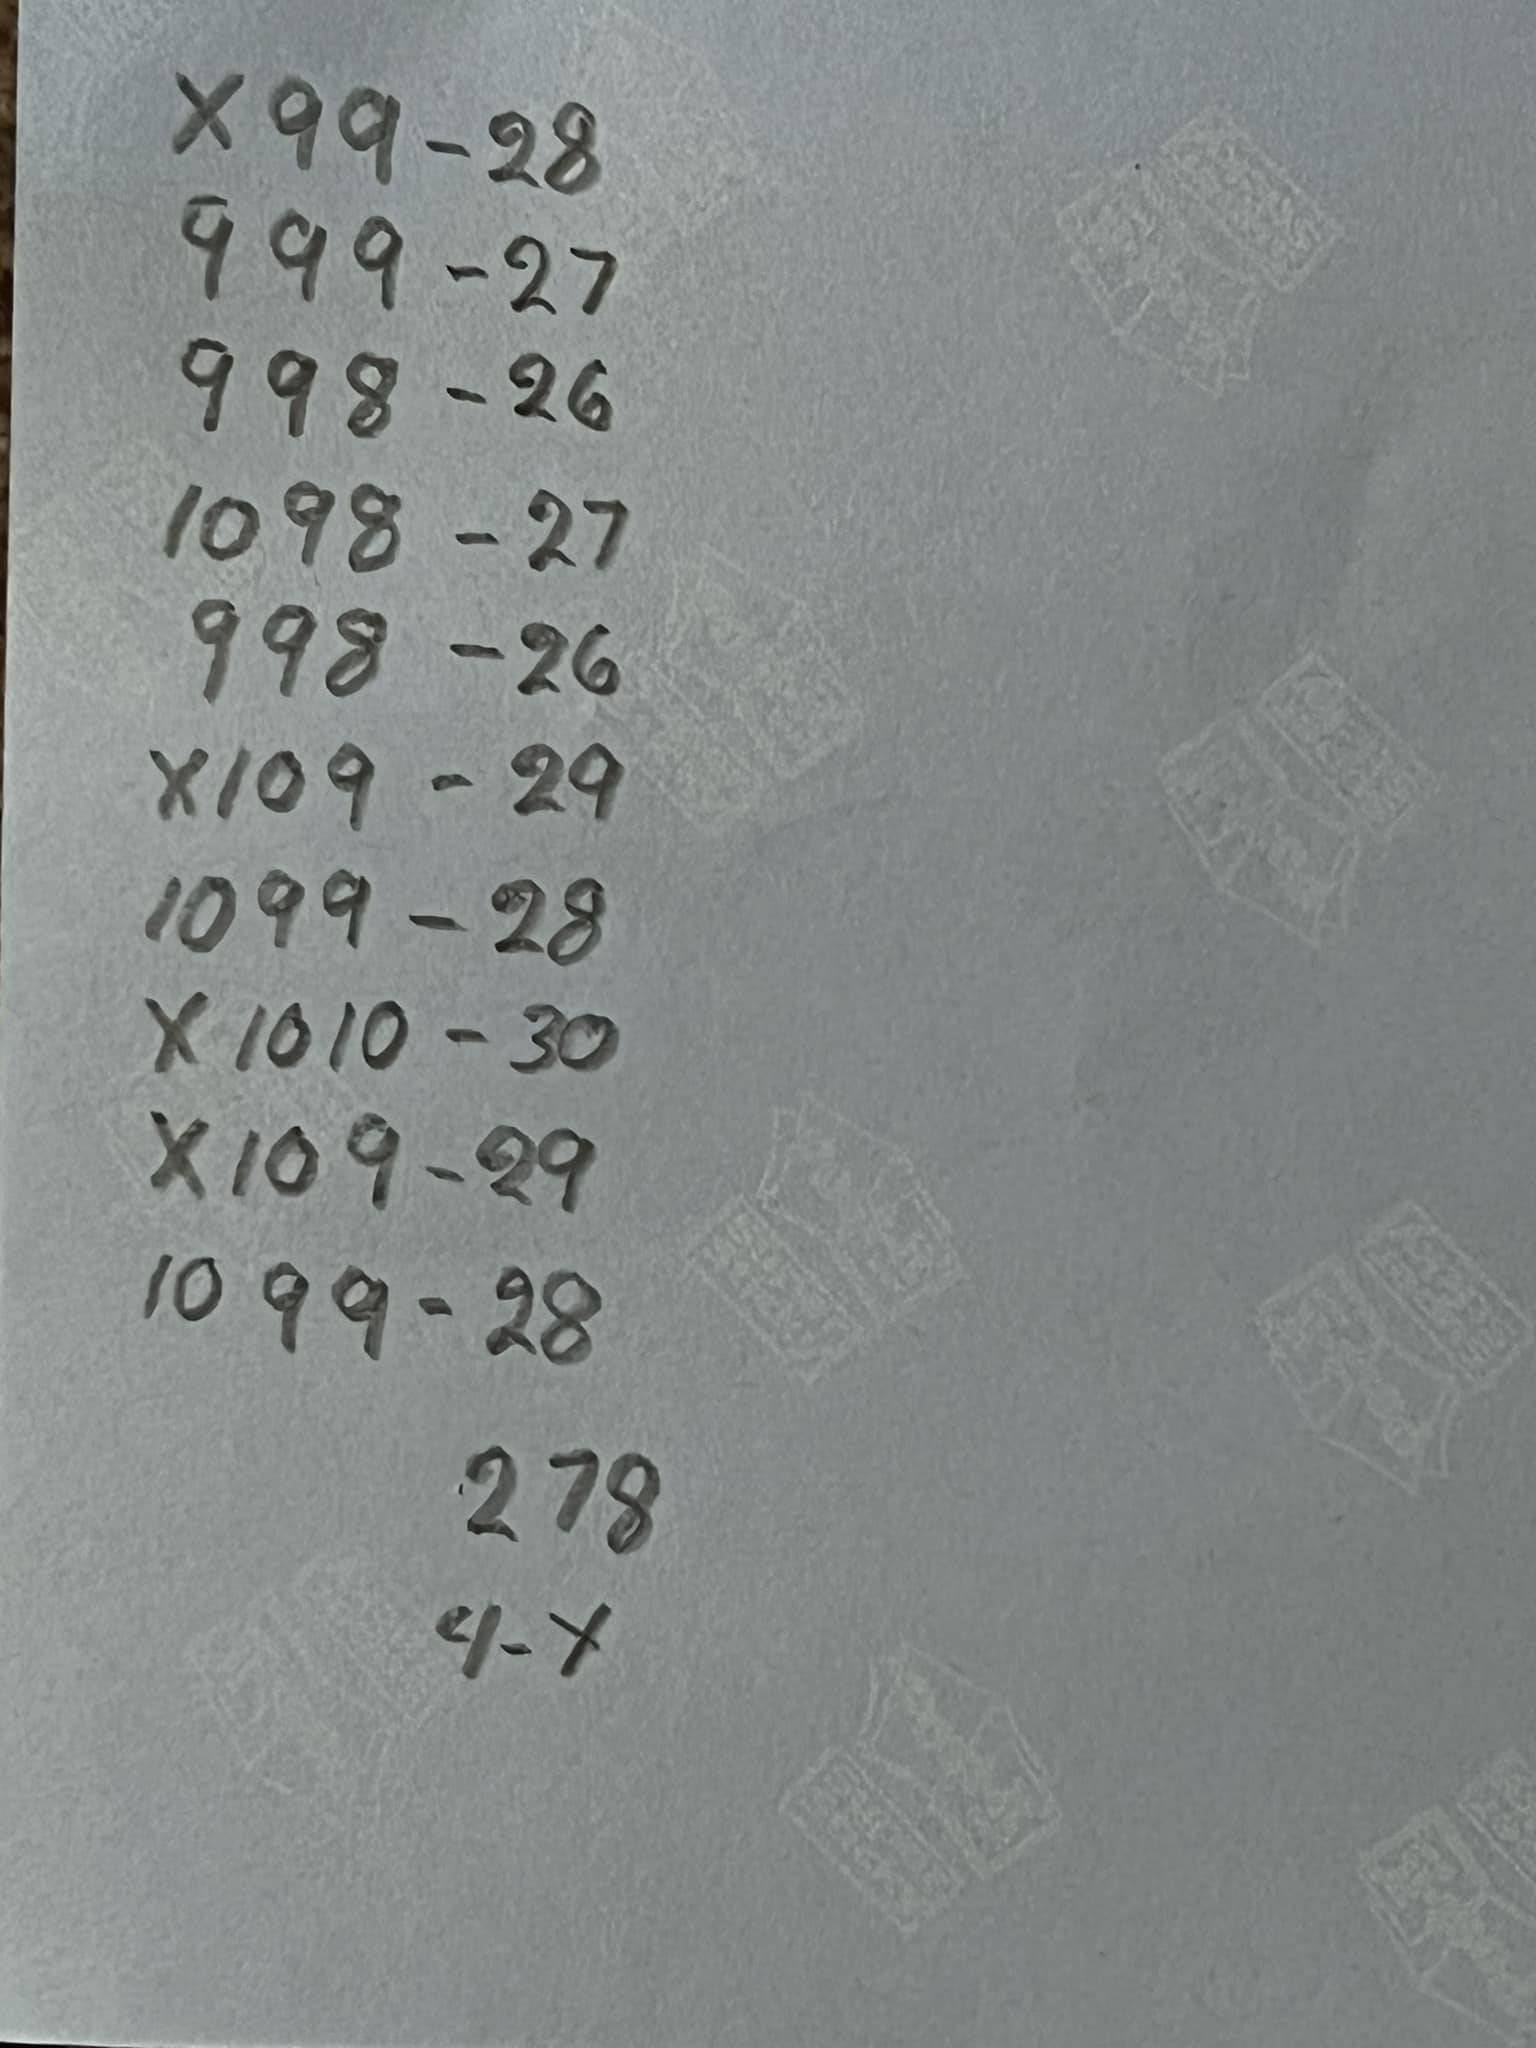 X 9 9 - 28
9 9 9 - 27
9 9 8 - 26
10 9 8 - 27
9 9 8 - 26
X 10 9 - 29
10 9 9 - 28
X 10 10 - 30
X 10 9 - 29
10 9 9 - 28
278
4 - X